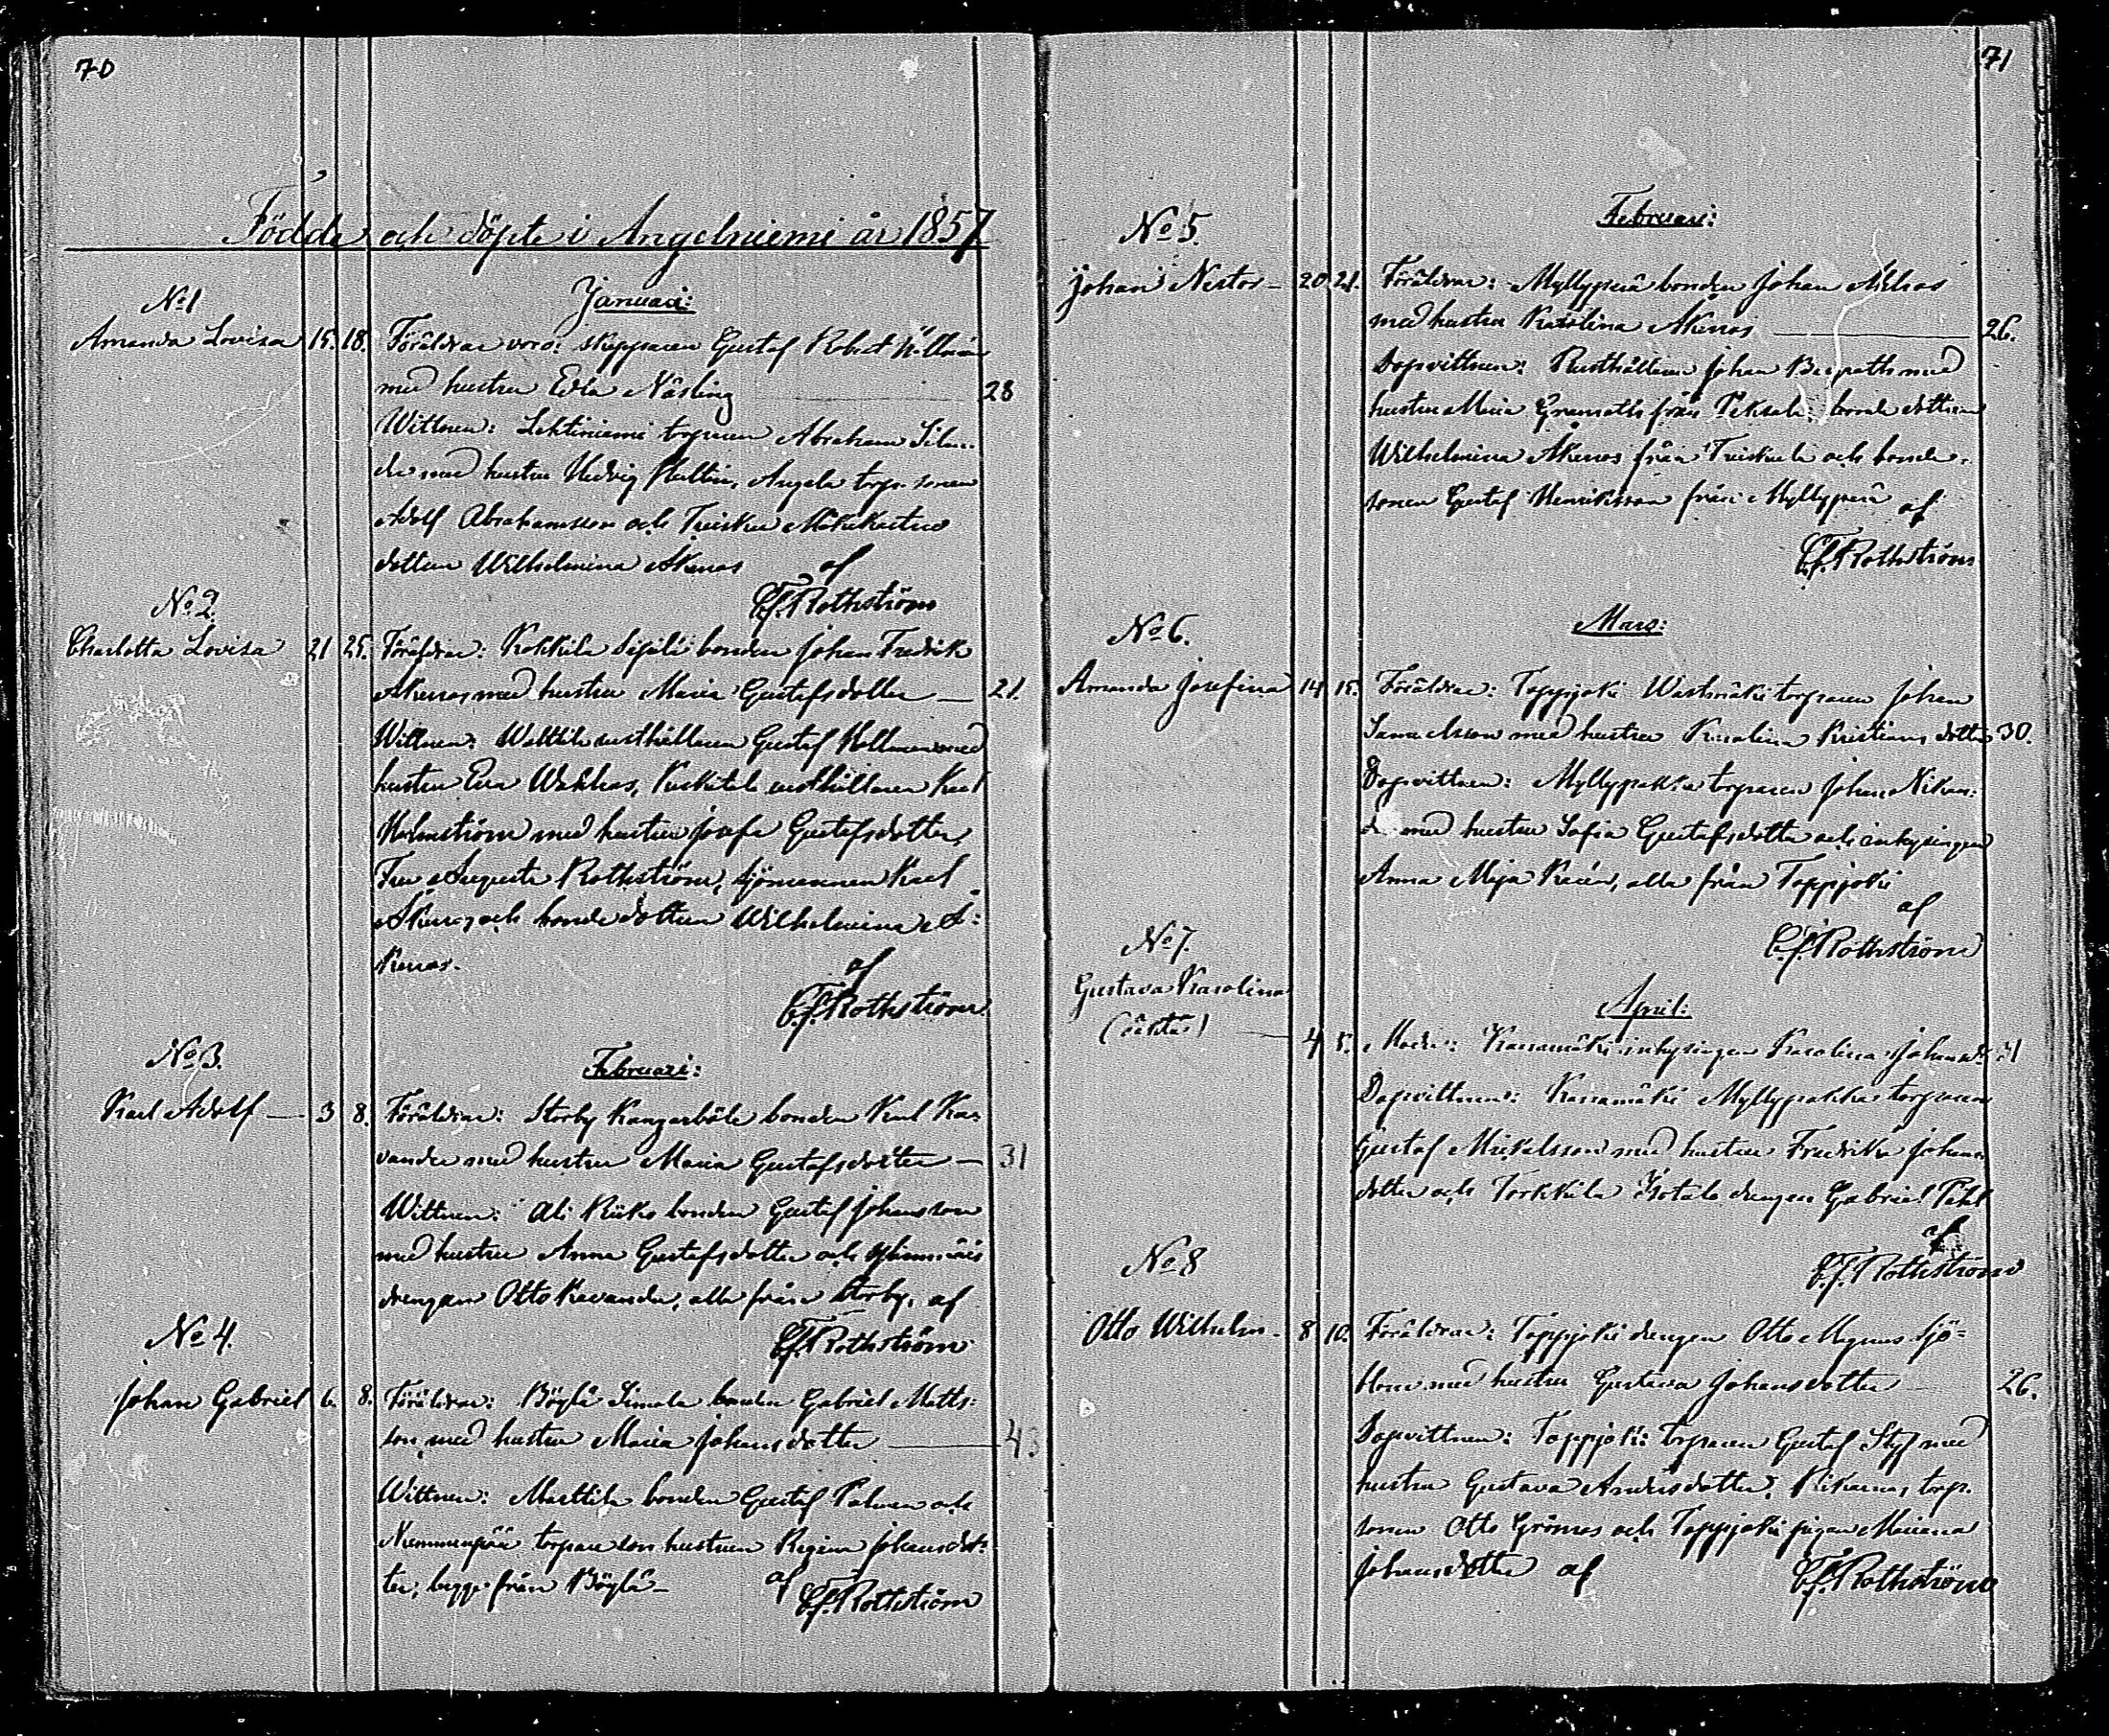 70
Födde och döpte i Angelniemi år 1857
Januari:
No 1
Amanda Lovisa 15. 18. Föräldrar voro: skepparen Gustaf Robert
med hustru Edla Näsling 28
Wittnen: Lehtiniemi torparen Abraham
med hustru Hedvig Angela torp. sonen
Adolf Abrahamsson och
dottern Wilhelmina Åkenas af
C.F. Rothström
No 2.
Charlotta Lovisa 21 25. Föräldrar: Kokkila Sipilä bonden Johan Fredrik
Åkenas med hustru Maria Gustafsdotter — 21.
Wittnen: rusthållaren Gustaf med
hustru Eva rusthållaren Karl
Holmström med hustru Josefa Gustafsdotter,
Fru Augusta Rothström, sjömannen Karl
Åkenas och bonde dottern Wilhelmina Å-
kenas.
af
C.F. Rothström
Februari:
No 3.
Karl Adolf — 3 8. Föräldrar: Storby Kangarböle bonden Karl Ka-
vander med hustru Maria Gustafsdotter — 31
Wittnen: Ali Kiiko bonden Gustaf Johansson
med hustru Anna Gustafsdotter och
drengen Otto Kavander, alla från Storby, af
C.F. Rothström
No 4.
Johan Gabriel 6. 8. Föräldrar: Böylä Simola bonden Gabriel Matts-
son med hustru Maria Johansdotter — 43
Wittnen: Marttila bonden Gustaf och
Nummenpää torpare son hustrun Regina Johansdot-
ter, begge från Böylä – af
C.F. Rothström
71
Februari:
No 5.
Johan Nestor – 20 21. Föräldrar: Myllyperä bonden Johan
med hustru Karolina Åkenas — 26.
Dopvittnen: Rusthållaren Johan med
hustru Maria från bonde dottern
Wilhelmina Åkenas från och bonde-
sonen Gustaf Henriksson från Myllyperä af
C.F. Rothström
Mars:
No 6.
Amanda Josefina 14 15. Föräldrar: Toppjoki Wästmäki torparen Johan
Samuelsson med hustru Karolina Kristians dotter 30.
Dopvittnen: Myllypakka torparen Johan Nikan-
der med hustru Sofia Gustafsdotter och inhysingen
Anna Maja alla från Toppjoki
af
C.F. Rothström
April:
No 7.
Gustava Karolina
(oäkta) — 4 5. Moder: Kanamäki inhysingen Karolina Johansd:
Dopvittnen: Kanamäki Myllypakka torparen
Gustaf Mickelsson med hustru Fredrika Johans-
dotter och Torkkila Isotalo drengen Gabriel
af
C.F. Rothström
No 8
Otto Wilhelm. 8 10. Föräldrar: Toppjoki drengen Otto Magnus Sjö-
blom med hustru Gustava Johansdotter — 26.
Dopvittnen: Toppjoki torparen Gustaf Styf med
hustru Gustava Andersdotter, torp.
sonen Otto Grönroos och Toppjoki pigan Mariana
Johansdotter af C.F. Rothström